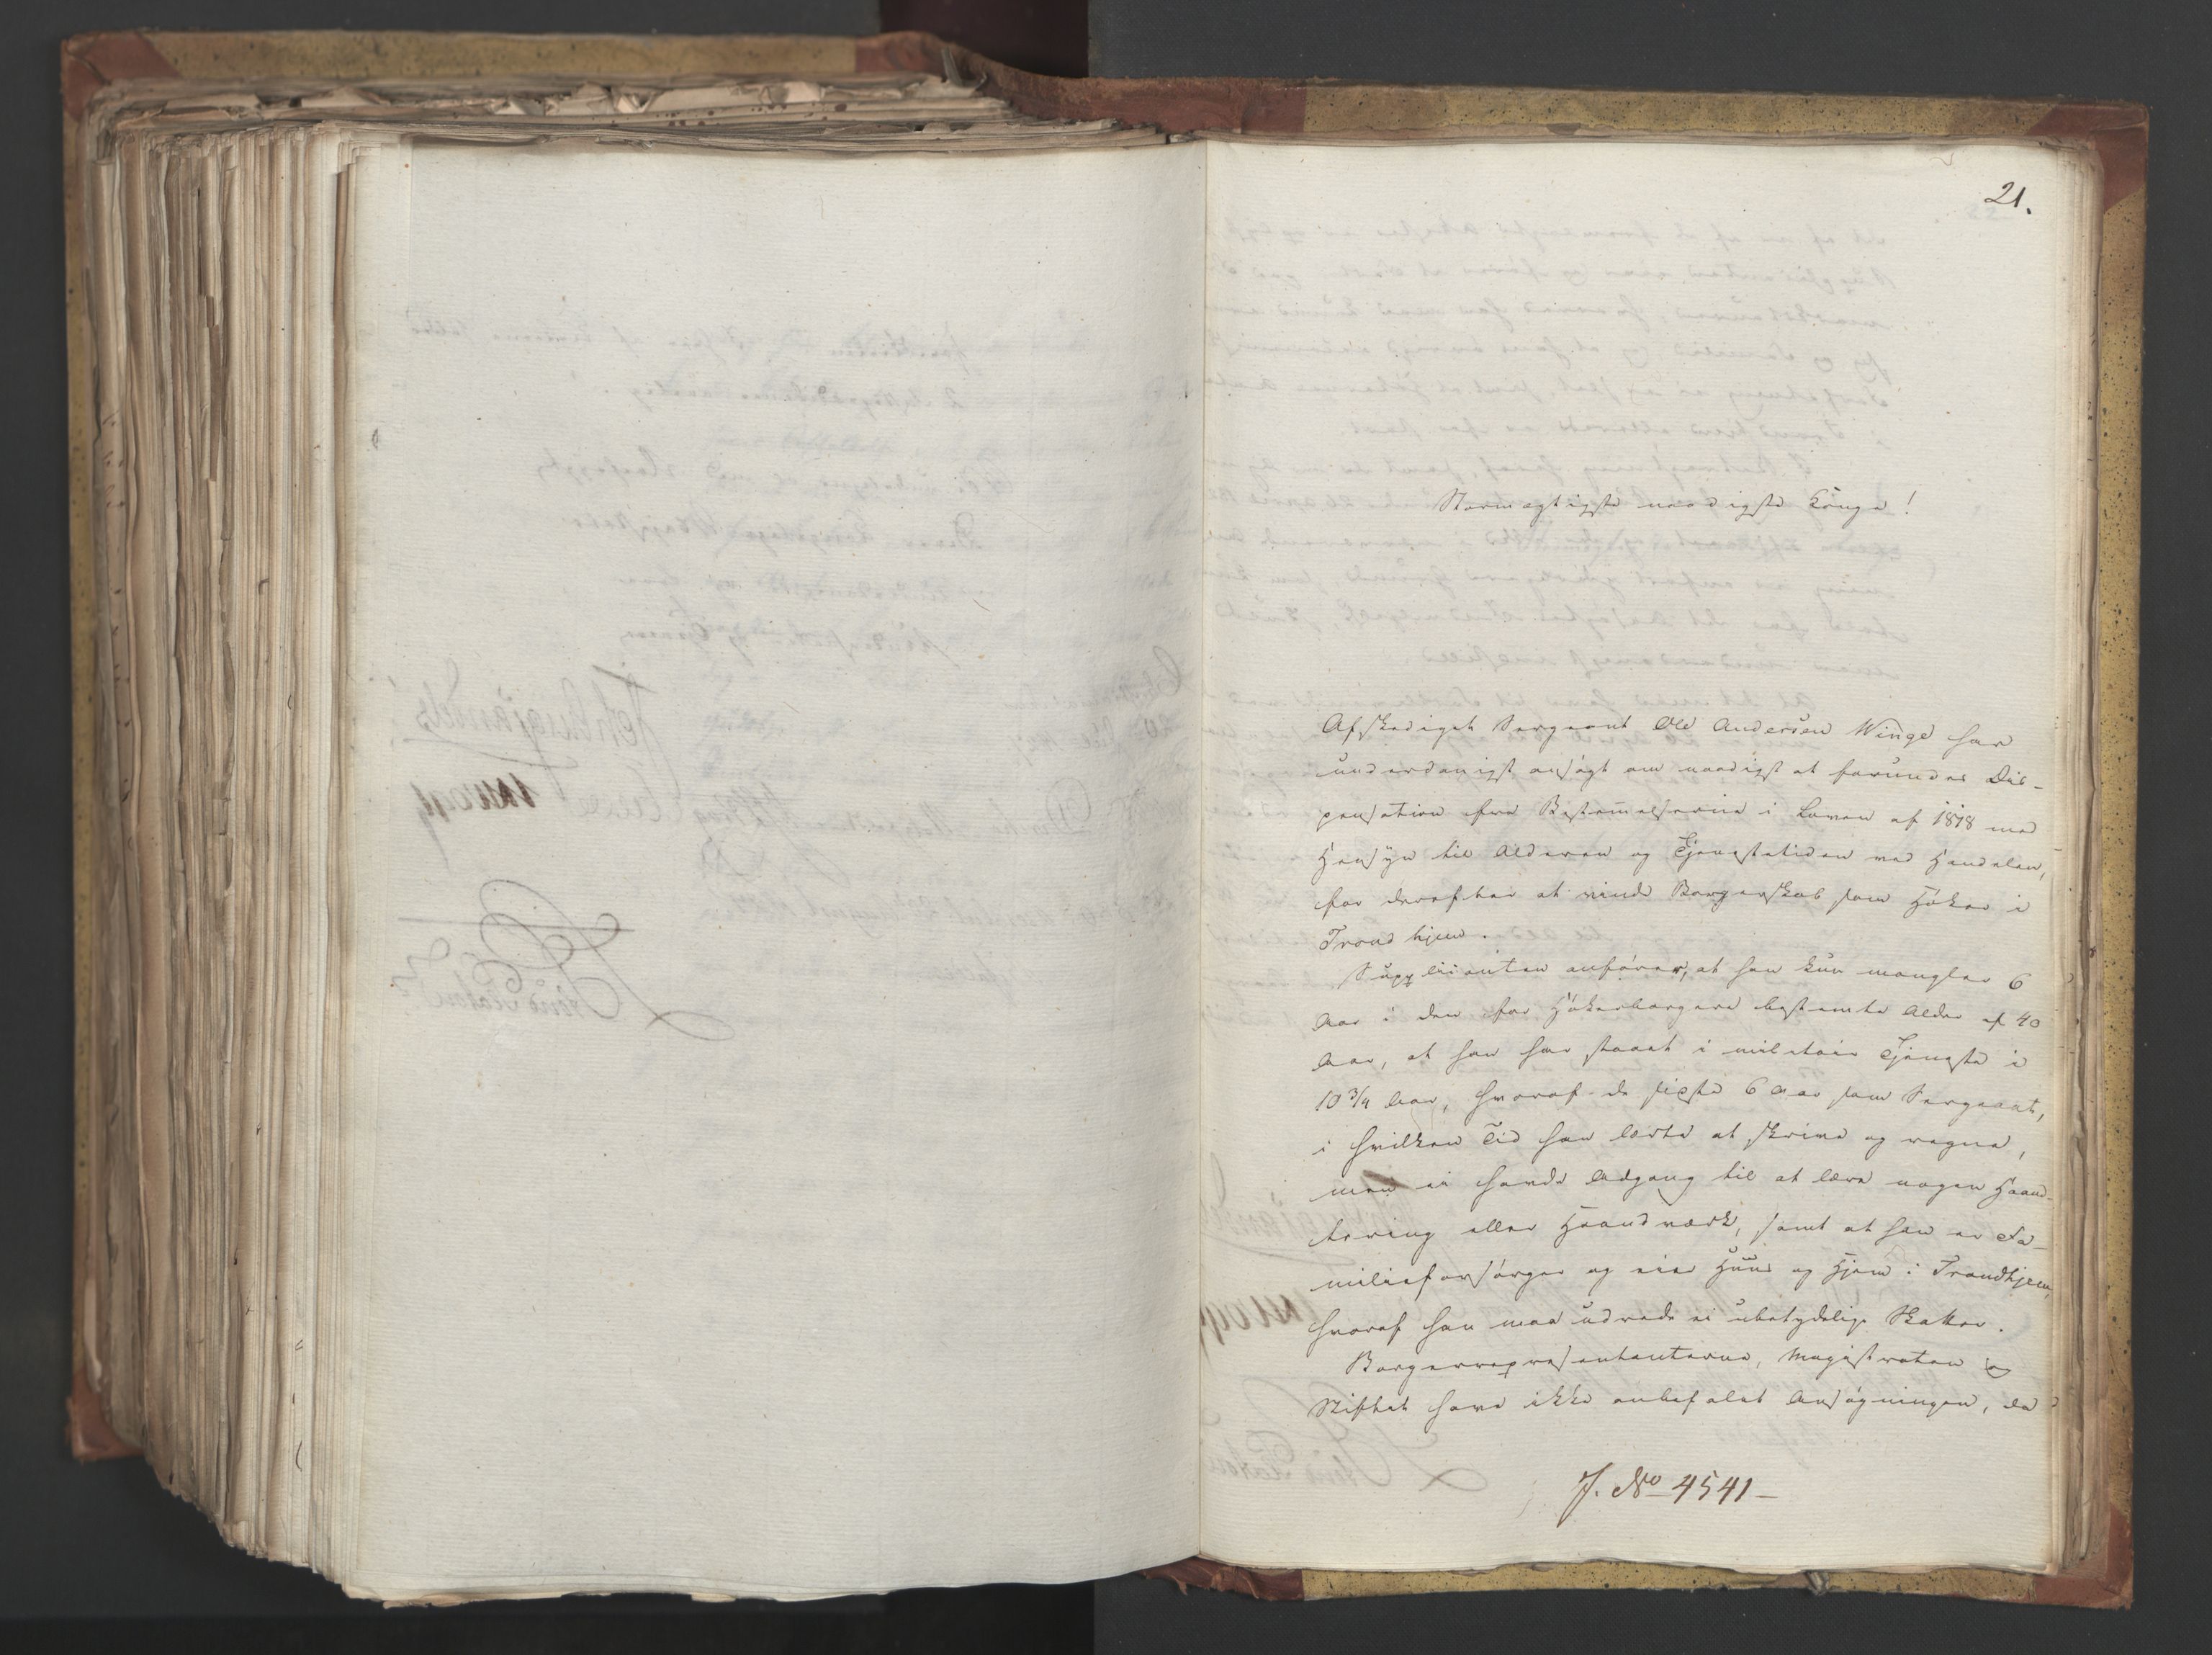 21.
Stormægtigste naadigste Konge!
Afskediget Sergeant Ole Andersen Winge har
underdanigst ansøgt om naadigst at forundes Dis-
pensation fra Bestemmelserne i Loven af 1818 med
Hensyn til Alderen og Tjenestetiden ved Handelen,
for derefter at vinde Borgerskab som Høker i
Trondhjem.
Supplicanten anfører, at han kun mangler 6
Aar i den for Høkerborgere bestemte Alder af 40
Aar, at han har staaet i militair Tjeneste i
10 3/4 Aar, hvoraf de sidste 6 Aar som Sergeant,
i hvilken Tid han lærte at skrive og regne,
men ei havde Adgang til at lære nogen Haand-
tering eller Haandværk, samt at han er Fa-
milieforsørger og eier Huus og Hjem i Trondhjem,
hvoraf han maa udrede ei ubetydelige Skatter.
Borgerrepresentanterne, Magistraten og
Stiftet have ikke anbefalet Ansøgningen, da
J. No 4541-